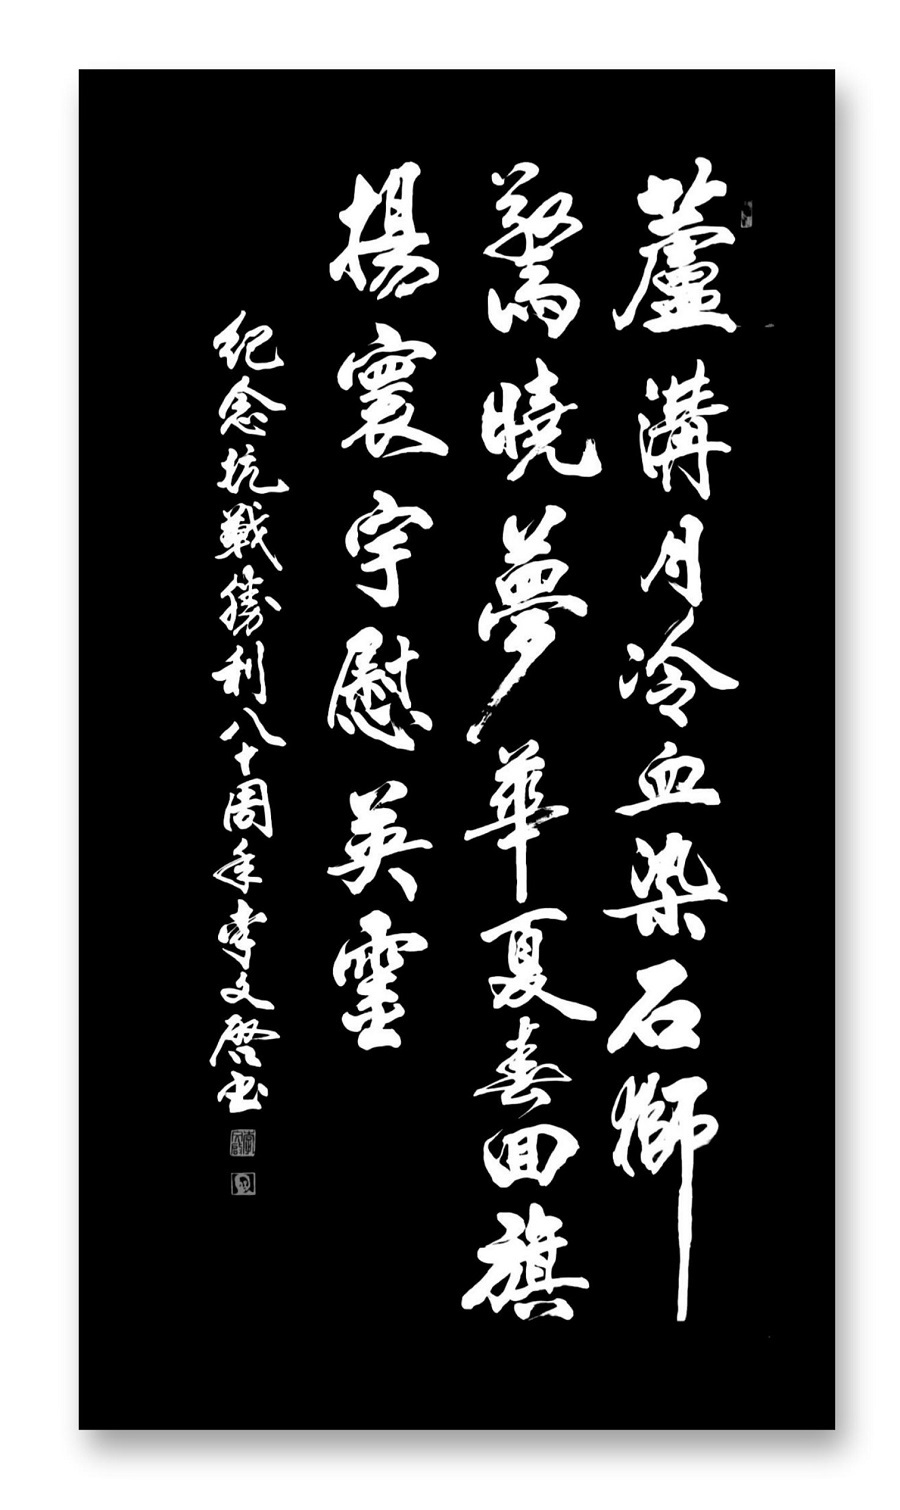 蘆溝月冷血染石獅
驚曉夢華夏春回旗
揚寰宇慰英靈
紀念抗戰勝利八十周年李文啓书